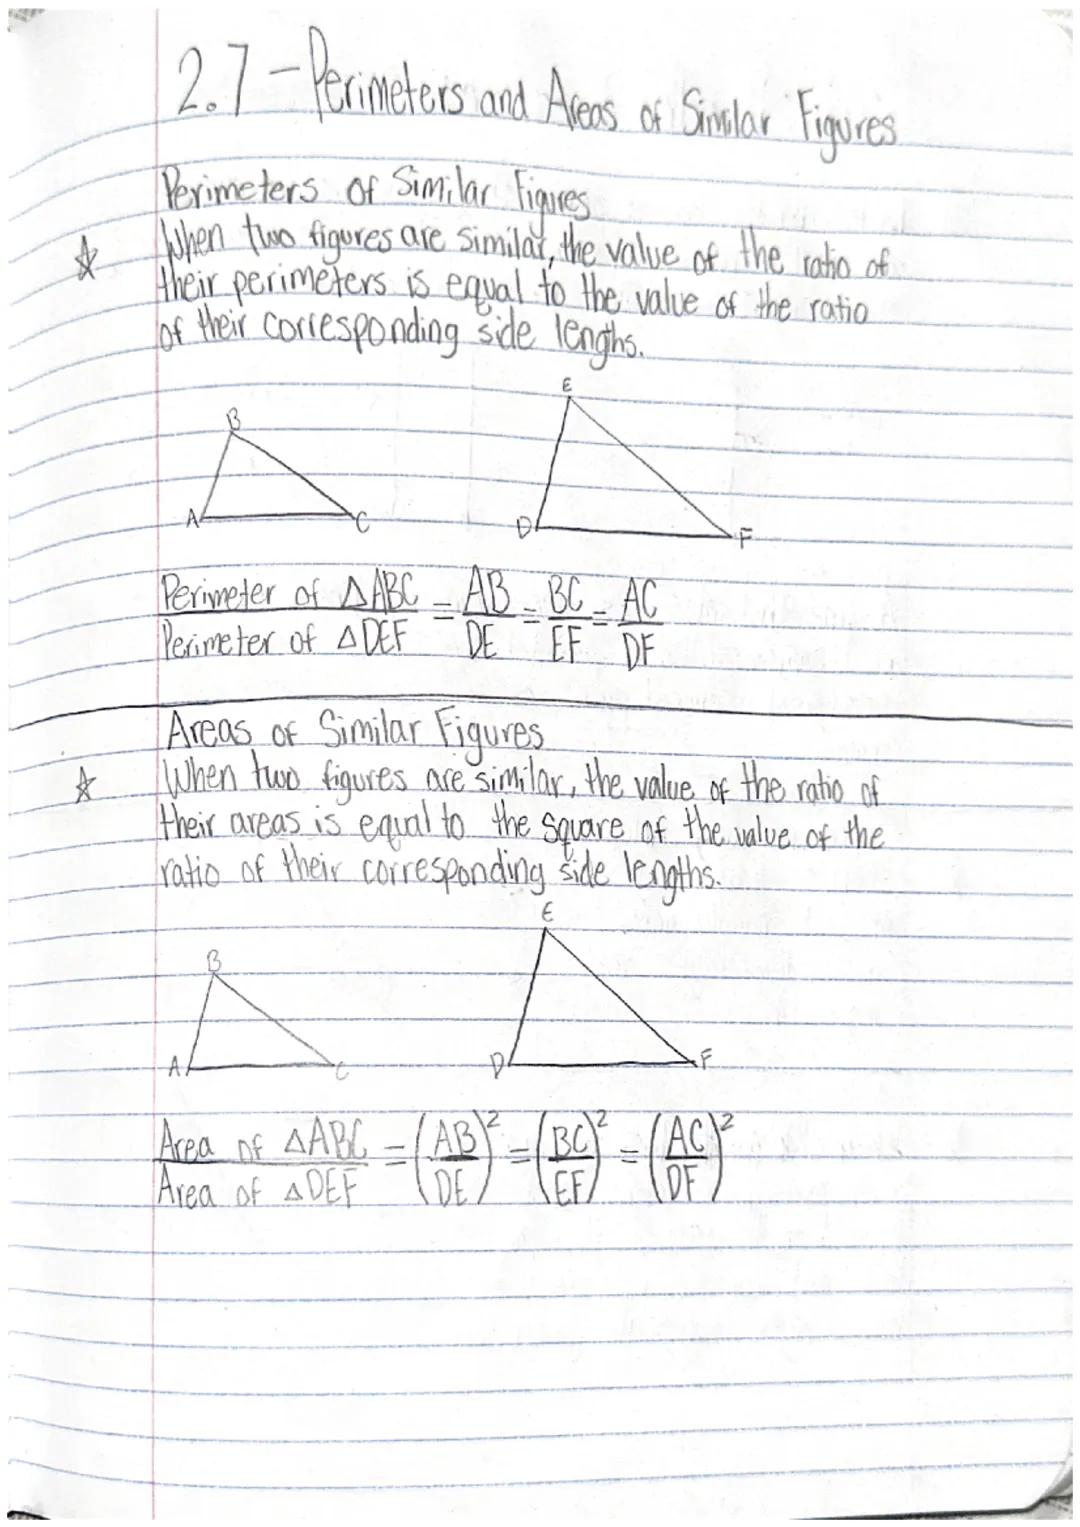 2.7 - Perimeters and Areas of Similar Figures
Perimeters of Similar Figures
☆ When two figures are similar, the value of the ratio of
their perimeters is equal to the value of the ratio
of their corresponding side lenghs.
B E
A C D F
Perimeter of △ABC = AB = BC = AC
Perimeter of △DEF DE EF DF
Areas of Similar Figures
☆ When two figures are similar, the value of the ratio of
their areas is equal to the square of the value of the
ratio of their corresponding side lengths.
B E
A C D F
Area of △ABC = (AB)² = (BC)² = (AC)²
Area of △DEF (DE) (EF) (DF)